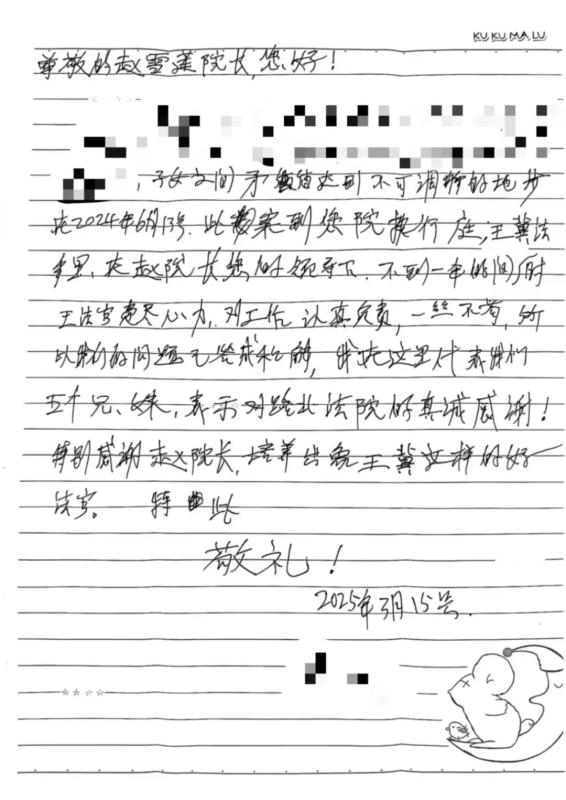 KUKUMALU
尊敬的赵雪莲院长,您好!
,子女之间矛盾达到不可调解的地步
在2024年6月13号.此案到您院执行庭,王冀法
手里,在赵院长您的领导下.不到一年的时间,
王法官费尽心力.对工作认真负责,一丝不苟,所
以我们的问题已答成和解,我在这里代表我们
五个兄、妹,表示对路北法院的真诚感谢!
特别感谢赵院长,培养出象王冀这样的好
法官。 特此
敬礼!
2025年3月15号.